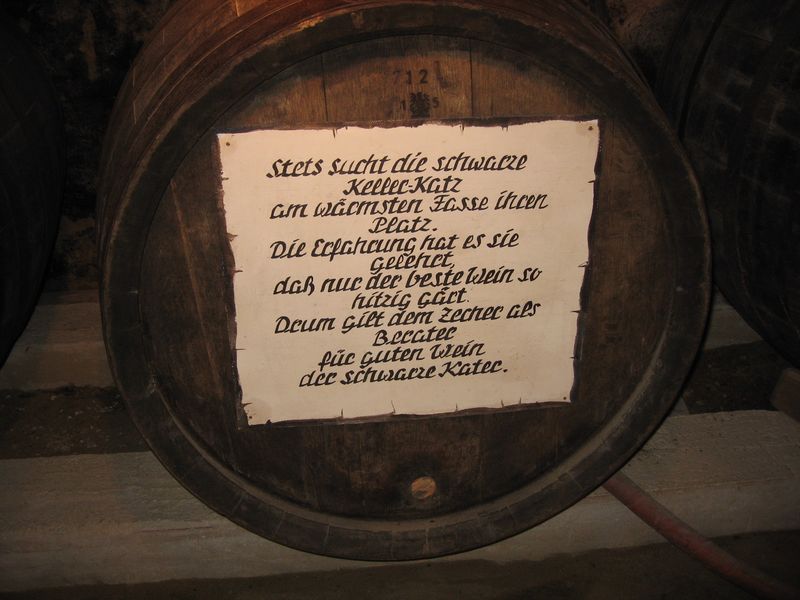 712
Stets sucht die schwarze
Keller-Katz
am wärmsten Fasse ihren
Platz.
Die Erfahrung hat es sie
gelehrt,
daß nur der beste Wein so
hitzig gärt.
Drum gilt dem Zecher als
Berater
für guten Wein
der schwarze Kater.